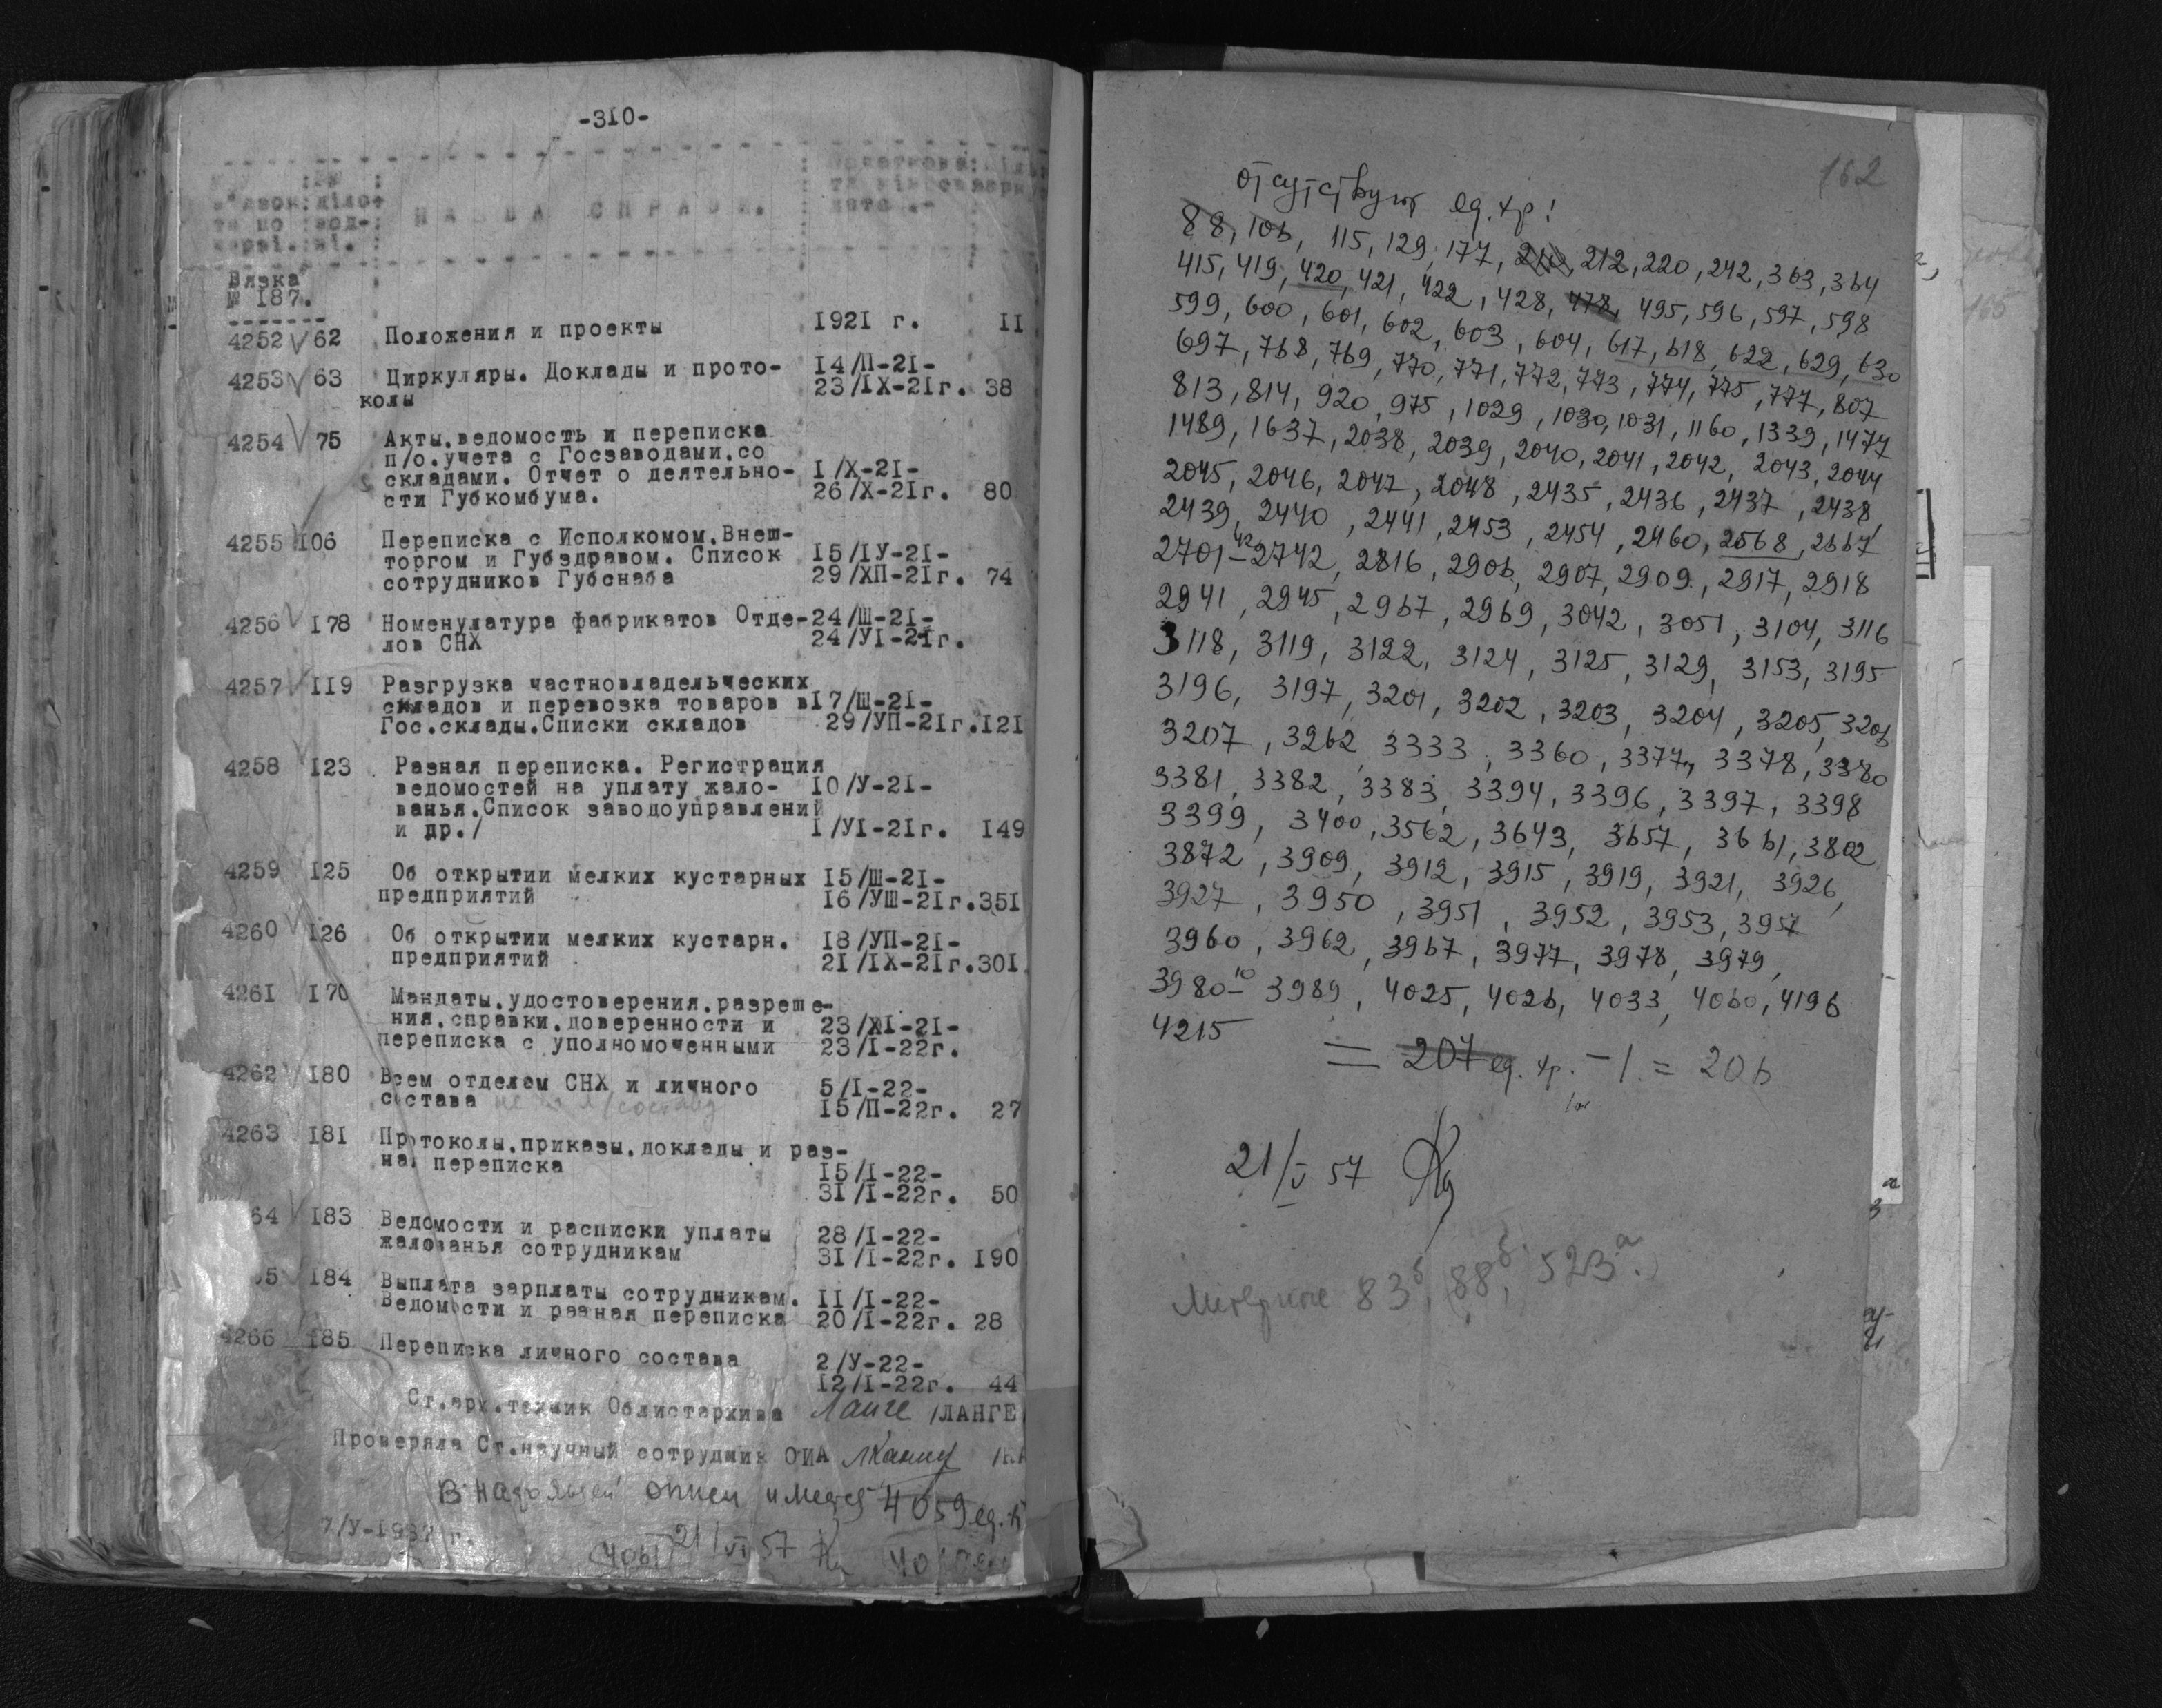 -310-
НАЗВА СПРАВИ.
Вязка
№ 187.
4252 62 Положения и проекты 1921 г. II
4253 63 Циркуляры. Доклады и прото- 14/П-21-
колы 23/IX-21г. 38
4254 75 Акты.ведомость и переписка
п/о.учета с Госзаводами.со
складами. Отчет о деятельно- I/X-21-
сти Губкомбума. 26/X-21г. 80
4255 106 Переписка с Исполкомом.Внеш-
торгом и Губздравом. Список 15/IУ-21-
сотрудников Губснаба 29/ХП-21г. 74
4256 178 Номенулатура фабрикатов Отде- 24/Ш-21-
лов СНХ 24/УI-21г.
4257 119 Разгрузка частновладельческих
складов и перевозка товаров в 17/Ш-21-
Гос.склады.Списки складов 29/УП-21г.121
4258 123 Разная переписка. Регистрация
ведомостей на уплату жало- 10/У-21-
ванья.Список заводоуправлений
и др./ I/УI-21г. 149
4259 125 Об открытии мелких кустарных 15/Ш-21-
предприятий 16/УШ-21г.351
4260 126 Об открытии мелких кустарн. 18/УП-21-
предприятий 21/IX-21г.301
4261 170 Мандаты.удостоверения.разреше-
ния.справки.доверенности и 23/XI-21-
переписка с уполномоченными 23/I-22г.
4262 180 Всем отделам СНХ и личного 5/I-22-
состава 15/П-22г. 27
4263 181 Протоколы.приказы.доклады и раз-
ная переписка 15/I-22-
31/I-22г. 50
64 183 Ведомости и расписки уплаты 28/I-22-
жалованья сотрудникам 31/I-22г. 190
65 184 Выплата зарплаты сотрудникам. II/I-22-
Ведомости и разная переписка 20/I-22г. 28
4266 185 Переписка личного состава 2/У-22-
12/I-22г. 44
Ст.арх.техник Облистархива Ланге /ЛАНГЕ
Проверяла Ст.научный сотрудник ОИА
В настоящей описи имеется 4059 ед.
7/У-1937 г.
4061 21/VI 57
162
отсутствуют ед.хр:
88, 106, 115, 129, 177, 210, 212, 220, 242, 363, 364
415, 419, 420, 421, 422, 428, 478, 495, 596, 597, 598
599, 600, 601, 602, 603, 604, 617, 618, 622, 629, 630
697, 768, 769, 770, 771, 772, 773, 774, 775, 777, 807
813, 814, 920, 975, 1029, 1030, 1031, 1160, 1339, 1477
1489, 1637, 2038, 2039, 2040, 2041, 2042, 2043, 2044
2045, 2046, 2047, 2048, 2435, 2436, 2437, 2438
2439, 2440, 2441, 2453, 2454, 2460, 2568, 2667
2701 -42 2742, 2816, 2906, 2907, 2909, 2917, 2918
2941, 2945, 2967, 2969, 3042, 3051, 3104, 3116
3118, 3119, 3122, 3124, 3125, 3129, 3153, 3195
3196, 3197, 3201, 3202, 3203, 3204, 3205, 3206
3207, 3262, 3333, 3360, 3377, 3378, 3380
3381, 3382, 3383, 3394, 3396, 3397, 3398
3399, 3400, 3562, 3643, 3657, 3661, 3802
3872, 3909, 3912, 3915, 3919, 3921, 3926,
3927, 3950, 3951, 3952, 3953, 3957
3960, 3962, 3967, 3977, 3978, 3979,
3980 -10 3989, 4025, 4026, 4033, 4060, 4196
4215
= 207 ед. хр. -1 = 206
21/V 57
Литерные 83б, 88б, 523а.